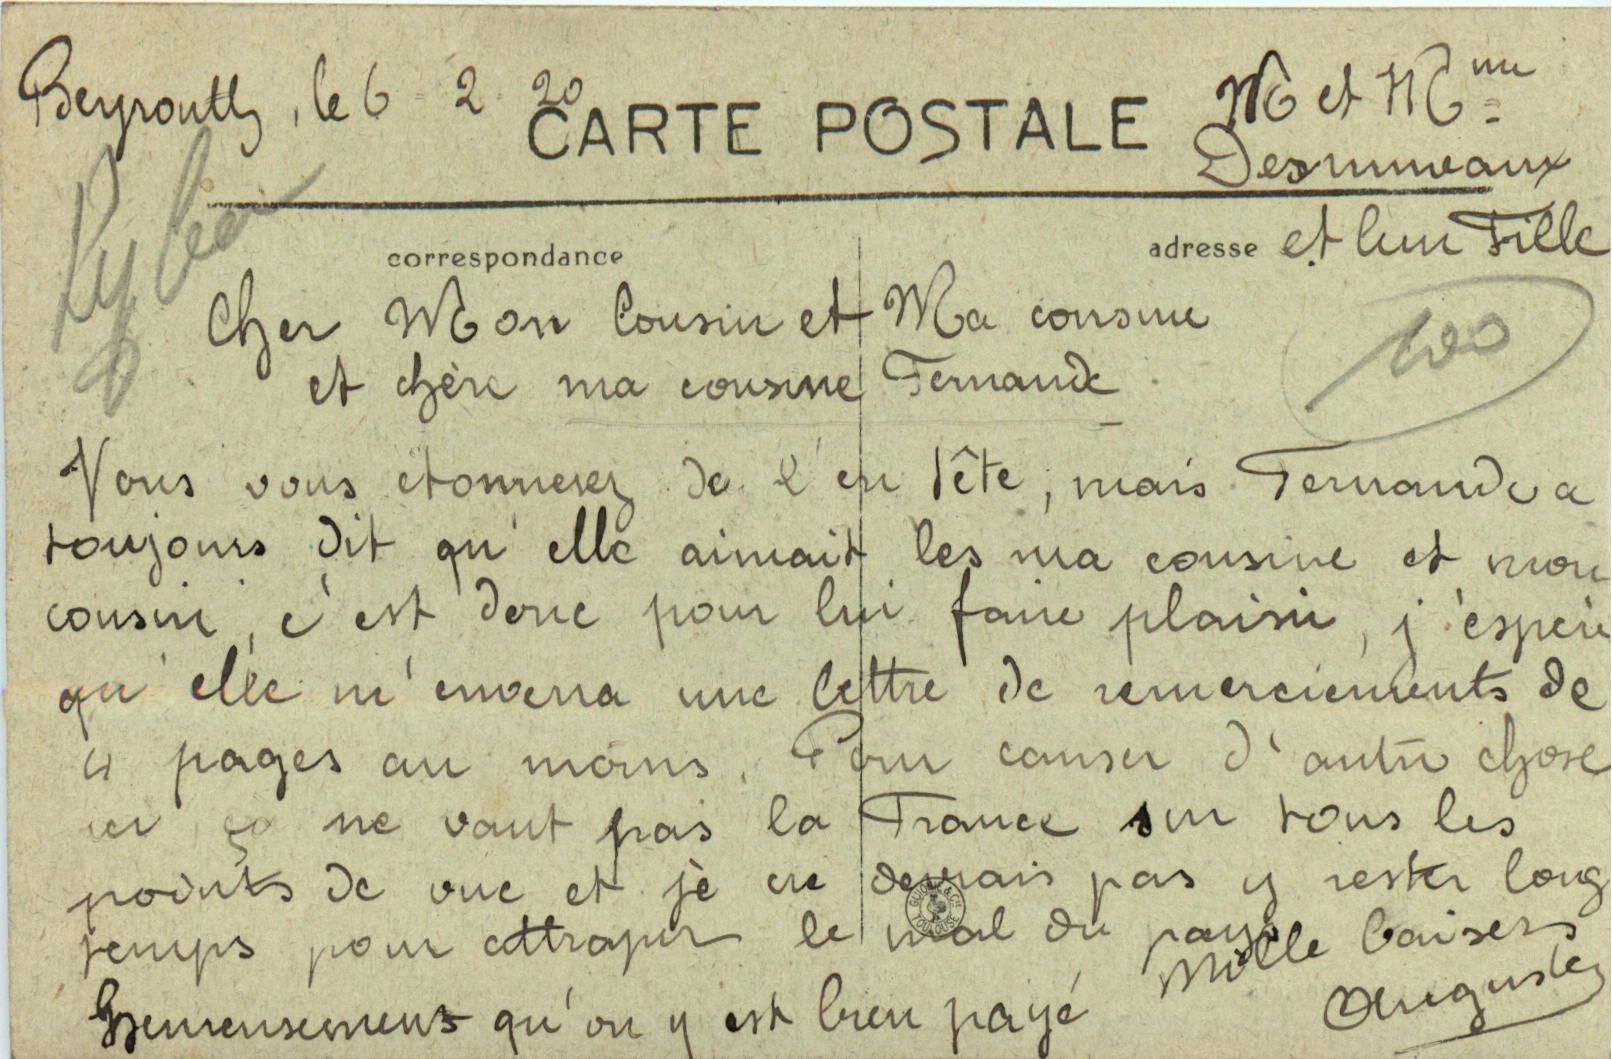 Beyrouth, le 6 2 20
CARTE POSTALE
M et Mme
Desruiveaux
et leur Fille
correspondance
adresse
100
Cher Mon Cousin et Ma cousine
et chère ma cousine Fernande
Vous vous étonnerez de l'en tête, mais Fernande a
toujours dit qu'elle aimait les ma cousine et mon
cousin, c'est donc pour lui faire plaisir, j'espère
qu'elle m'enverra une lettre de remerciements de
4 pages au moins. Pour causer d'autre chose
ici ça ne vaut pas la France sur tous les
points de vue et je ne devrais pas y rester long
temps pour attraper le mal du pays
Heureusement qu'on y est bien payé
Mille baisers
Auguste
GUIONIE & Cie TOULOUSE